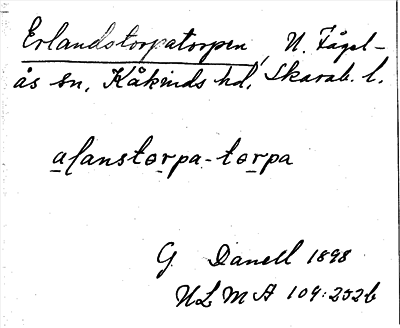 Erlandstorpatorpen, N. Fågel-
ås sn, Kåkinds hd, Skarab. l.
alanstorpa-torpa
G. Danell 1898
ULMA 109:252b